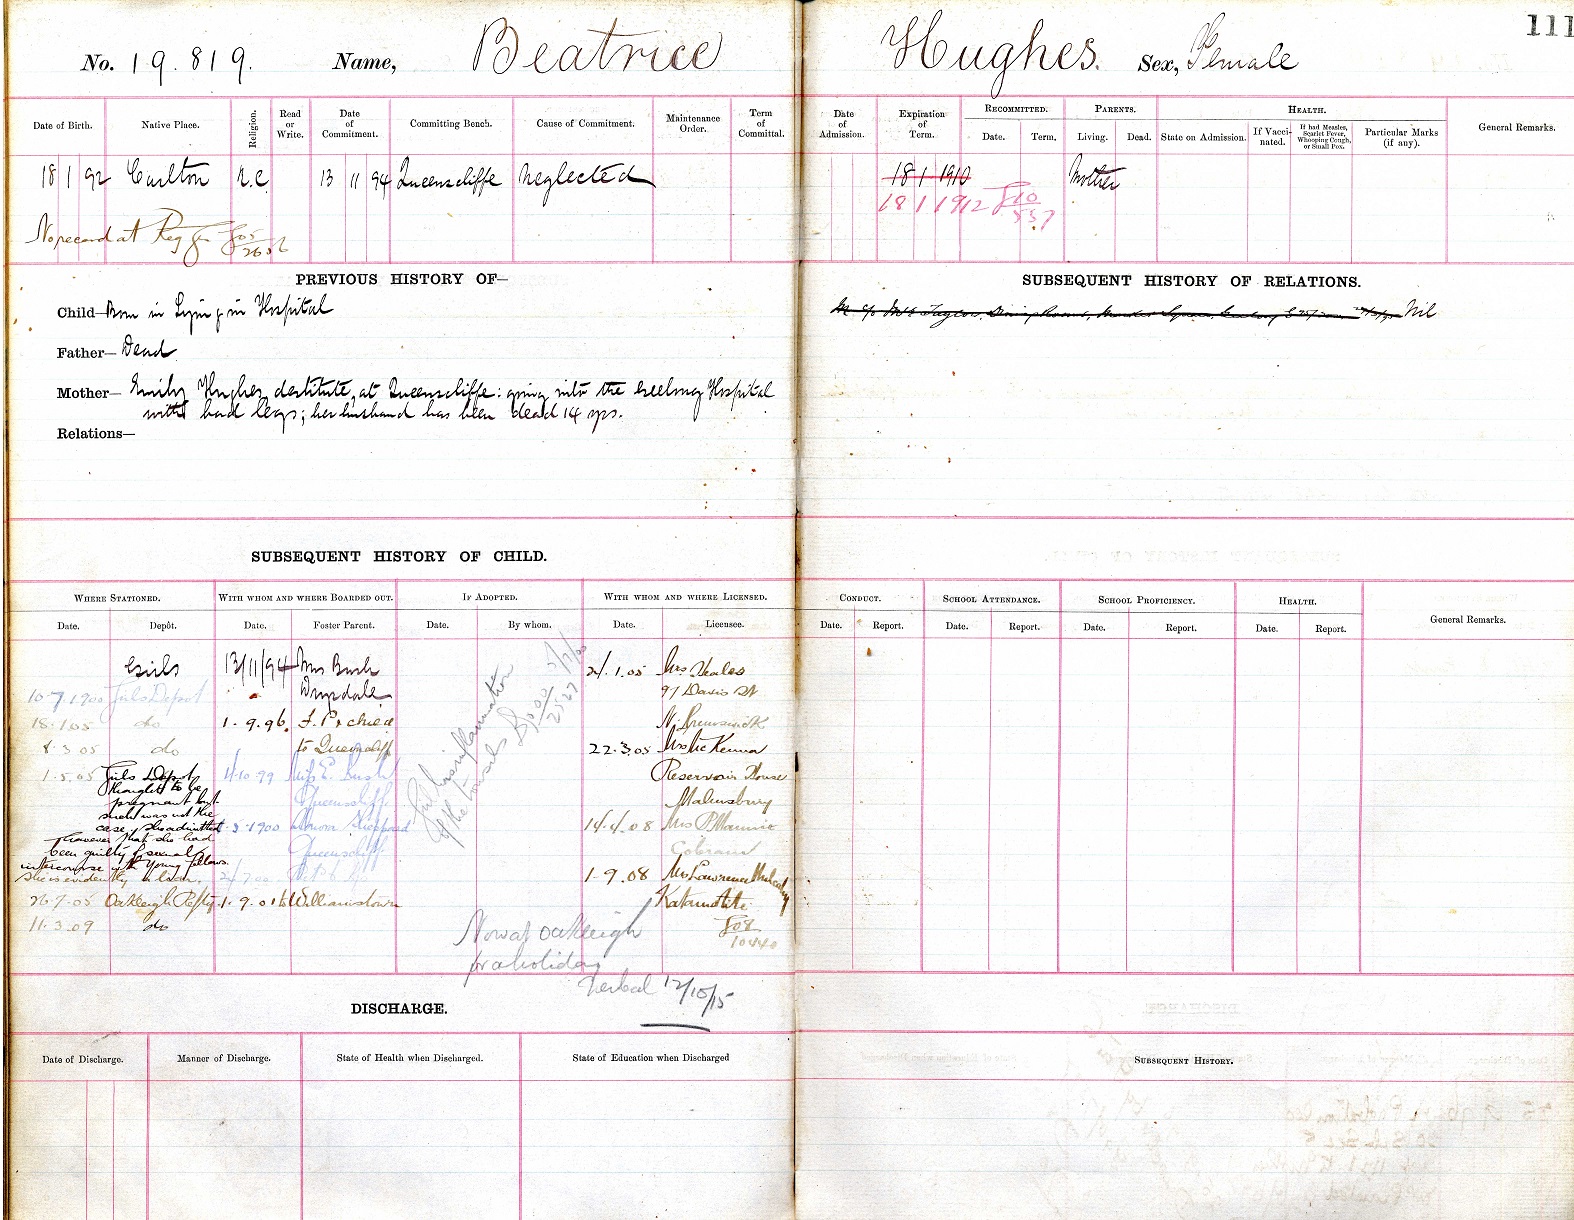 111
No. 19.819. Name, Beatrice Hughes. Sex, Female
Date of Birth. Native Place. Religion. Read or Write. Date of Commitment. Committing Bench. Cause of Commitment. Maintenance Order. Term of Committal. Date of Admission. Expiration of Term. RECOMMITTED. Date. Term. PARENTS. Living. Dead. HEALTH. State on Admission. If Vaccinated. If had Measles, Scarlet Fever, Whooping Cough, or Small Pox. Particular Marks (if any). General Remarks.
18 1 92 Carlton R.C. 13 11 94 Queenscliffe Neglected 18 1 1910 Mother
18 1 1912 10/557
No record at Reg Gen 05/2656
PREVIOUS HISTORY OF—
Child— Born in Lying in Hospital
Father— Dead
Mother— Emily Hughes destitute, at Queenscliffe: going into the Geelong Hospital
with bad legs; her husband has been dead 14 yrs.
Relations—
SUBSEQUENT HISTORY OF RELATIONS.
M c/o Mrs Taylor, Dining Rooms, Nil
SUBSEQUENT HISTORY OF CHILD.
WHERE STATIONED. WITH WHOM AND WHERE BOARDED OUT. IF ADOPTED. WITH WHOM AND WHERE LICENSED. CONDUCT. SCHOOL ATTENDANCE. SCHOOL PROFICIENCY. HEALTH. General Remarks.
Date. Depôt. Date. Foster Parent. Date. By whom. Date. Licensee. Date. Report. Date. Report. Date. Report. Date. Report.
Girls 13/11/94 Mrs Bush 24.1.05 Mrs Heales
10-7-1900 Girls Depot Drysdale 97 Davis St
18.1.05 do 1.9.96. N. Brunswick
8.3.05 do to Queenscliff 22.3.05 Mrs McKenna
1.5.05 Girls Depot 4.10.99 Miss E. Bush Reservoir House
thought to be Queenscliff Malmsbury
pregnant but
such was not the
case, she admitted 5.1900 Sheppard 14.4.08 Mrs P Mannix
however that she had Queenscliff Cobram
been guilty of sexual
intercourse with young fellows.
she is evidently a liar. 1-9.08 Mrs Lawrence Mulcahy
26.7.05 Oakleigh Refty 1.9.01 to Williamstown Katamatite
11.3.09 do 08/10440
Girl has inflammation
of the tonsils 00/2527
Now at Oakleigh
for a holiday
verbal 12/10/15
DISCHARGE.
Date of Discharge. Manner of Discharge. State of Health when Discharged. State of Education when Discharged SUBSEQUENT HISTORY.